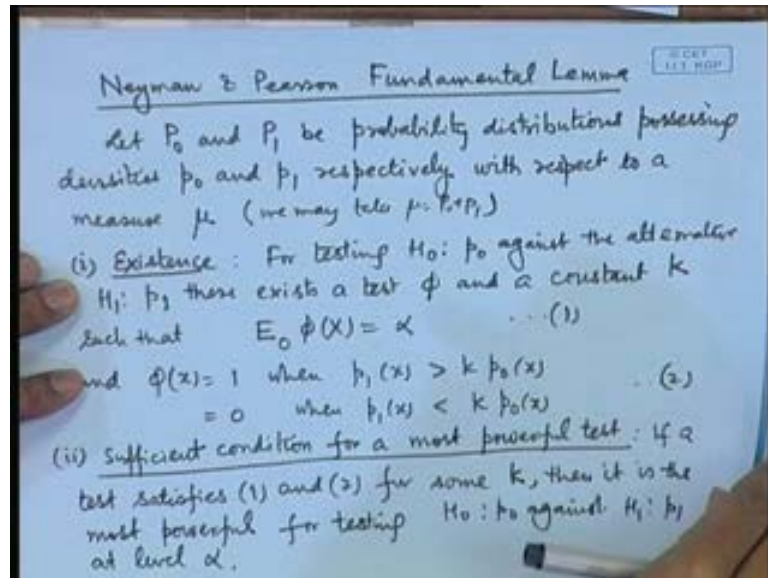 Neyman & Pearson Fundamental Lemma
© CET
I.I.T. KGP
Let P₀ and P₁ be probability distributions possessing
densities p₀ and p₁ respectively with respect to a
measure μ (we may take μ = P₀+P₁)
(i) Existence : For testing H₀: p₀ against the alternative
H₁: p₁ there exists a test ϕ and a constant k
such that E₀ ϕ(X) = α ...(1)
and ϕ(x) = 1 when p₁(x) > k p₀(x) ..(2)
= 0 when p₁(x) < k p₀(x)
(ii) Sufficient condition for a most powerful test : If a
test satisfies (1) and (2) for some k, then it is the
most powerful for testing H₀ : p₀ against H₁ : p₁
at level α.